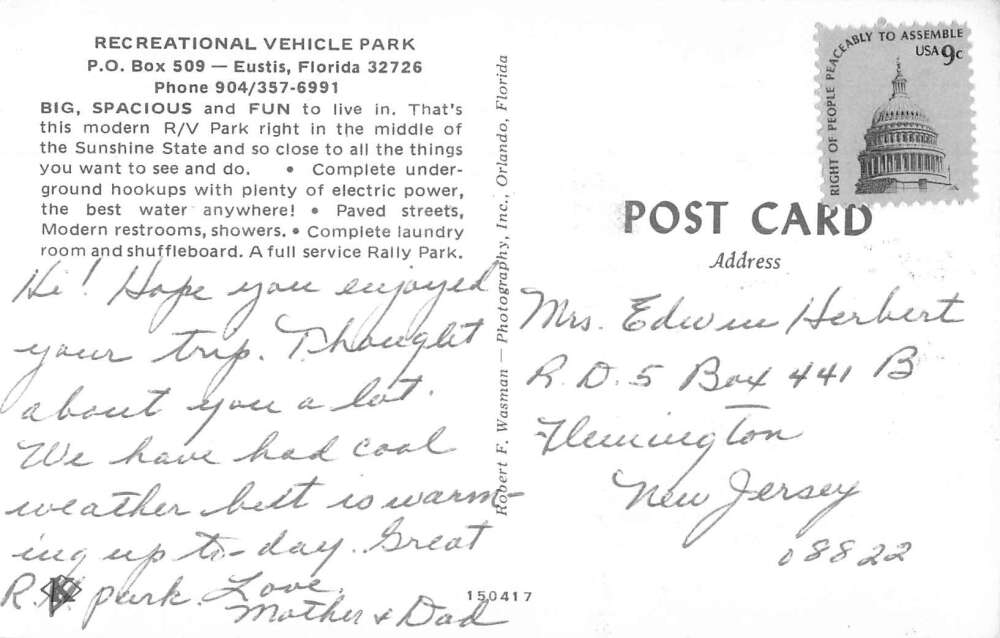 RECREATIONAL VEHICLE PARK
P.O. Box 509 — Eustis, Florida 32726
Phone 904/357-6991
BIG, SPACIOUS and FUN to live in. That's
this modern R/V Park right in the middle of
the Sunshine State and so close to all the things
you want to see and do. • Complete under-
ground hookups with plenty of electric power,
the best water anywhere! • Paved streets,
Modern restrooms, showers. • Complete laundry
room and shuffleboard. A full service Rally Park.
Hi! Hope you enjoyed
your trip. Thought
about you a lot.
We have had cool
weather but is warm-
ing up to-day. Great
R.V. park. Love,
Mother & Dad
Robert F. Wasman — Photography, Inc., Orlando, Florida
150417
RIGHT OF PEOPLE PEACEABLY TO ASSEMBLE
USA 9c
POST CARD
Address
Mrs. Edwin Herbert
R. D. 5 Box 441 B
Flemington
New Jersey
08822